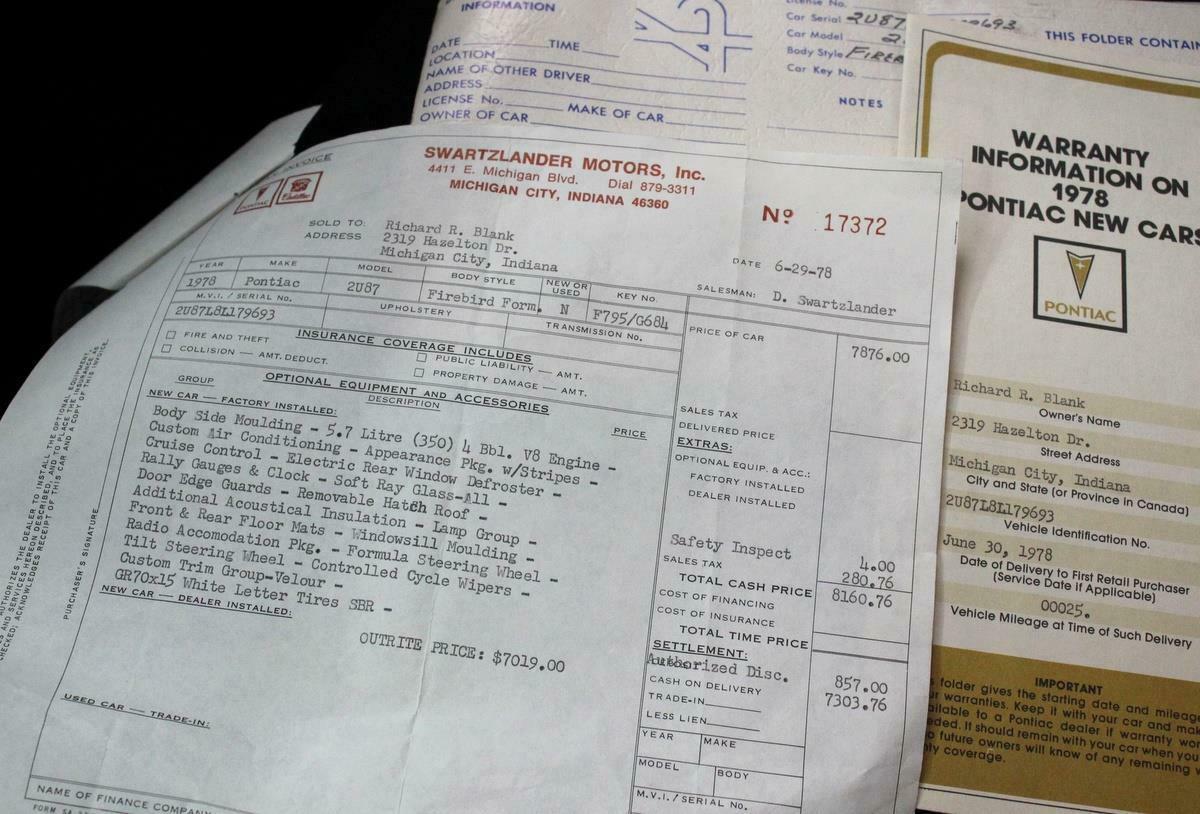 INFORMATION
DATE TIME
LOCATION
NAME OF OTHER DRIVER
ADDRESS
LICENSE No. MAKE OF CAR
OWNER OF CAR
License No.
Car Serial 2U87 9693
Car Model
Body Style
Car Key No.
NOTES
THIS FOLDER
INVOICE
PONTIAC Cadillac
SWARTZLANDER MOTORS, Inc.
4411 E. Michigan Blvd. Dial 879-3311
MICHIGAN CITY, INDIANA 46360
Nº 17372
SOLD TO: Richard R. Blank
ADDRESS 2319 Hazelton Dr.
Michigan City, Indiana
DATE 6-29-78
SALESMAN: D. Swartzlander
YEAR MAKE MODEL BODY STYLE NEW OR USED KEY NO.
1978 Pontiac 2U87 Firebird Form. N F795/G684
M.V.I. / SERIAL No. UPHOLSTERY TRANSMISSION No.
2U87L8L179693
INSURANCE COVERAGE INCLUDES
FIRE AND THEFT PUBLIC LIABILITY — AMT.
COLLISION — AMT. DEDUCT. PROPERTY DAMAGE — AMT.
OPTIONAL EQUIPMENT AND ACCESSORIES
GROUP DESCRIPTION PRICE
NEW CAR — FACTORY INSTALLED:
Body Side Moulding - 5.7 Litre (350) 4 Bbl. V8 Engine -
Custom Air Conditioning - Appearance Pkg. w/Stripes -
Cruise Control - Electric Rear Window Defroster -
Rally Gauges & Clock - Soft Ray Glass-All -
Door Edge Guards - Removable Hatch Roof -
Additional Acoustical Insulation - Lamp Group -
Front & Rear Floor Mats - Windowsill Moulding -
Radio Accomodation Pkg. - Formula Steering Wheel -
Tilt Steering Wheel - Controlled Cycle Wipers -
Custom Trim Group-Velour -
GR70x15 White Letter Tires SBR -
NEW CAR — DEALER INSTALLED:
OUTRITE PRICE: $7019.00
USED CAR — TRADE-IN:
NAME OF FINANCE COMPANY
PRICE OF CAR 7876.00
SALES TAX
DELIVERED PRICE
EXTRAS:
OPTIONAL EQUIP. & ACC.:
FACTORY INSTALLED
DEALER INSTALLED
Safety Inspect 4.00
SALES TAX 280.76
TOTAL CASH PRICE 8160.76
COST OF FINANCING
COST OF INSURANCE
TOTAL TIME PRICE
SETTLEMENT:
Authorized Disc. 857.00
CASH ON DELIVERY 7303.76
TRADE-IN
LESS LIEN
YEAR MAKE
MODEL BODY
M.V.I. / SERIAL No.
AUTHORIZES THE DEALER TO INSTALL THE OPTIONAL EQUIPMENT
AND SERVICES HEREON DESCRIBED, AND TO PLACE THE INSURANCE AS
CHECKED; ACKNOWLEDGES RECEIPT OF THIS CAR AND A COPY OF THIS INVOICE.
PURCHASER'S SIGNATURE
WARRANTY
INFORMATION ON
1978
PONTIAC NEW CARS
PONTIAC
Richard R. Blank
Owner's Name
2319 Hazelton Dr.
Street Address
Michigan City, Indiana
City and State (or Province in Canada)
2U87L8L179693
Vehicle Identification No.
June 30, 1978
Date of Delivery to First Retail Purchaser
(Service Date if Applicable)
00025.
Vehicle Mileage at Time of Such Delivery
IMPORTANT
folder gives the starting date and mileage
warranties. Keep it with your car and
to a Pontiac dealer if warranty
It should remain with your car when you
future owners will know of any remaining
coverage.